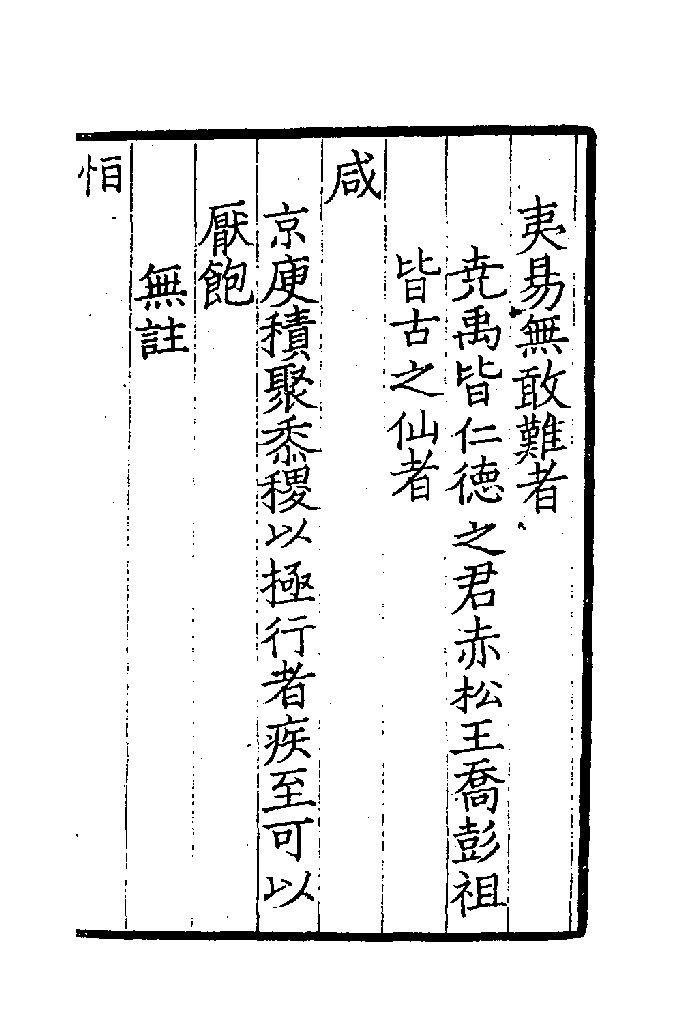 夷易無敢難者
堯禹皆仁德之君赤松王喬彭祖
皆古之仙者
咸
京庾積聚黍稷以極行者疾至可以
厭飽
無註
恒